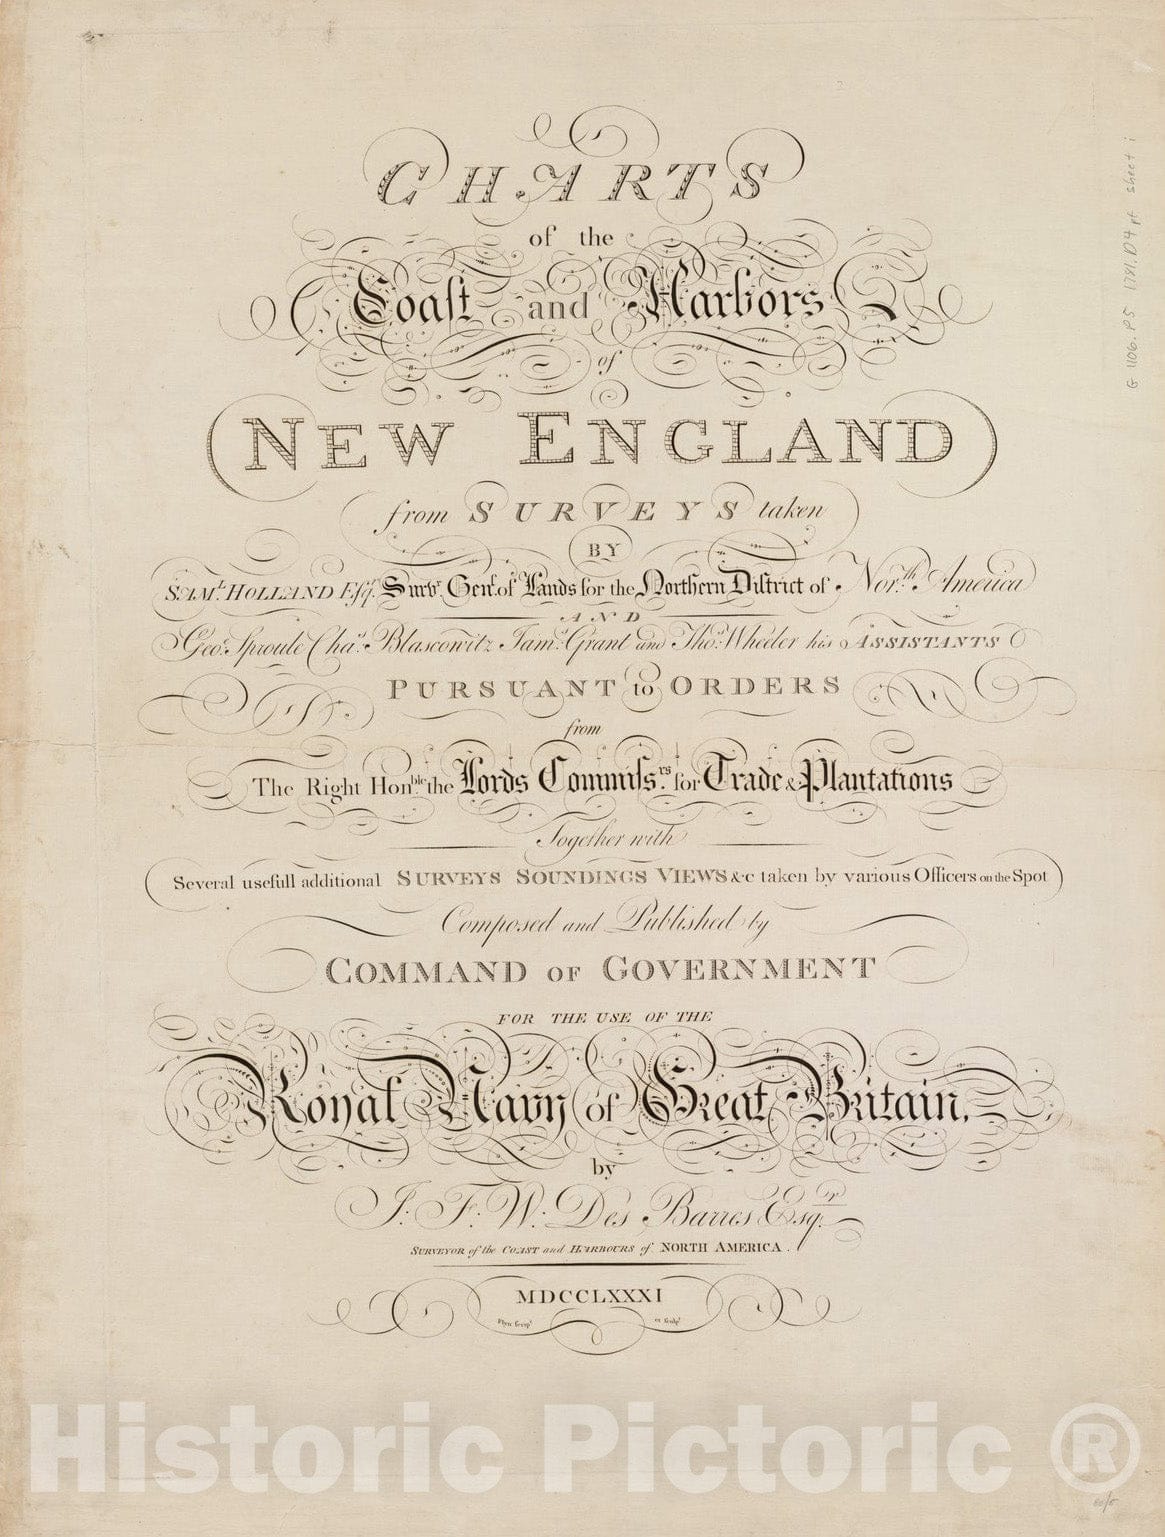 CHARTS
of the
Coaſt and Harbors
of
NEW ENGLAND
from SURVEYS taken
BY
SAML. HOLLAND Eſqr. Survr. Genl. of Lands for the Northern Diſtrict of North. America
AND
Geo. Sproule Chas. Blascowitz Jams. Grant and Thos. Wheeler his ASSISTANTS
PURSUANT to ORDERS
from
The Right Honble. the Lords Commiſsrs. for Trade & Plantations
Together with
Several usefull additional SURVEYS SOUNDINGS VIEWS &c taken by various Officers on the Spot
Composed and Published by
COMMAND OF GOVERNMENT
FOR THE USE OF THE
Royal Navy of Great Britain.
by
J: F: W: Des Barres Esqr.
SURVEYOR of the COAST and HARBOURS of NORTH AMERICA.
MDCCLXXXI
et sculpt.
G 1106. P5 1781. D4 pt sheet 1
Historic Pictoric ®